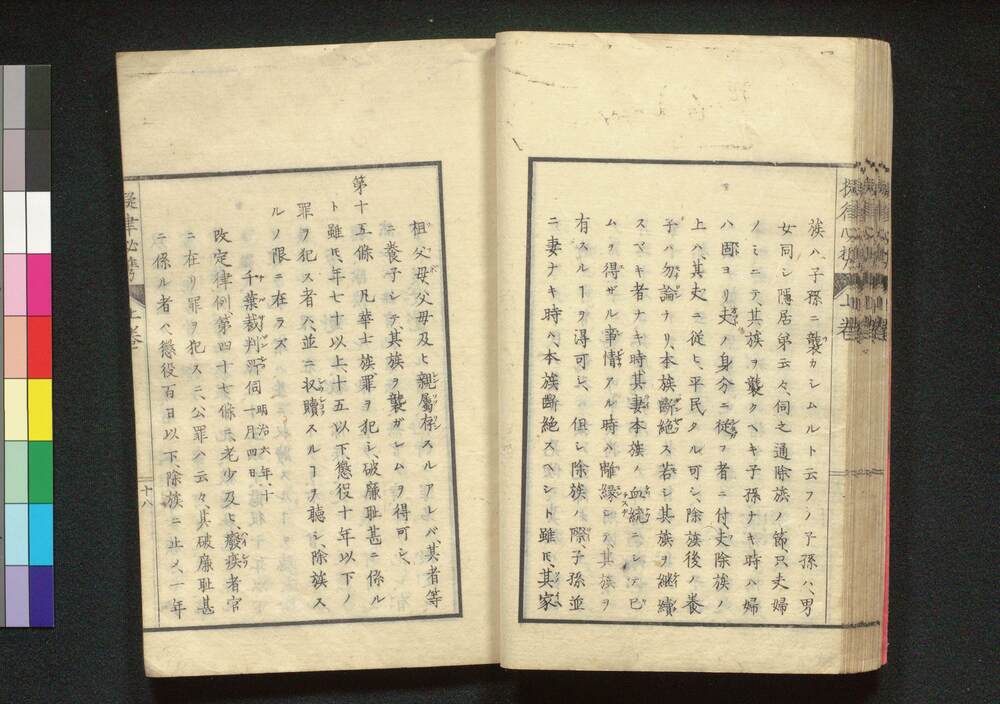 族ハ、子孫ニ襲カシムルト云フ、ノ子孫ハ、男
女同シ、隱居第云々、伺之通除族ノ節、只夫婦
ノミニテ、其族ヲ襲クヘキ子孫ナキ時ハ、婦
ハ固ヨリ夫ノ身分ニ從フ者ニ付、夫除族ノ
上ハ、其夫ニ從ヒ、平民タル可シ、除族後ノ養
子ハ勿論ナリ、本族斷絶ス若シ其族ヲ繼續
スヘキ者ナキ時、其妻本族ノ血統ニシテ已
ムヲ得ザル事情アル時ハ離縁シテ其族ヲ
有スルヿヲ得可シ、但シ除族ノ際子孫並
ニ妻ナキ時ハ、本族斷絶スヘシト雖𪜈、其家
上卷
祖父母父母及ヒ親屬存スルアレバ、其者等
ニ養子シテ、其族ヲ襲ガシムヲ得可シ、
第十五條 凡華士族罪ヲ犯シ、破廉耻甚ニ係ル
ト雖𪜈、年七十以上十五以下、懲役十年以下ノ
罪ヲ犯ス者ハ、並ニ收贖スルヿヲ聽シ、除族ス
ルノ限ニ在ラズ
千葉裁判所伺 明治六年、十一月四日、
改定律例第四十七條ニ、老少及ヒ、癈疾者官
ニ在リ罪ヲ犯スニ、公罪ハ云々、其破廉耻甚
ニ係ル者ハ、懲役百日以下、除族ニ止メ、一年
十八